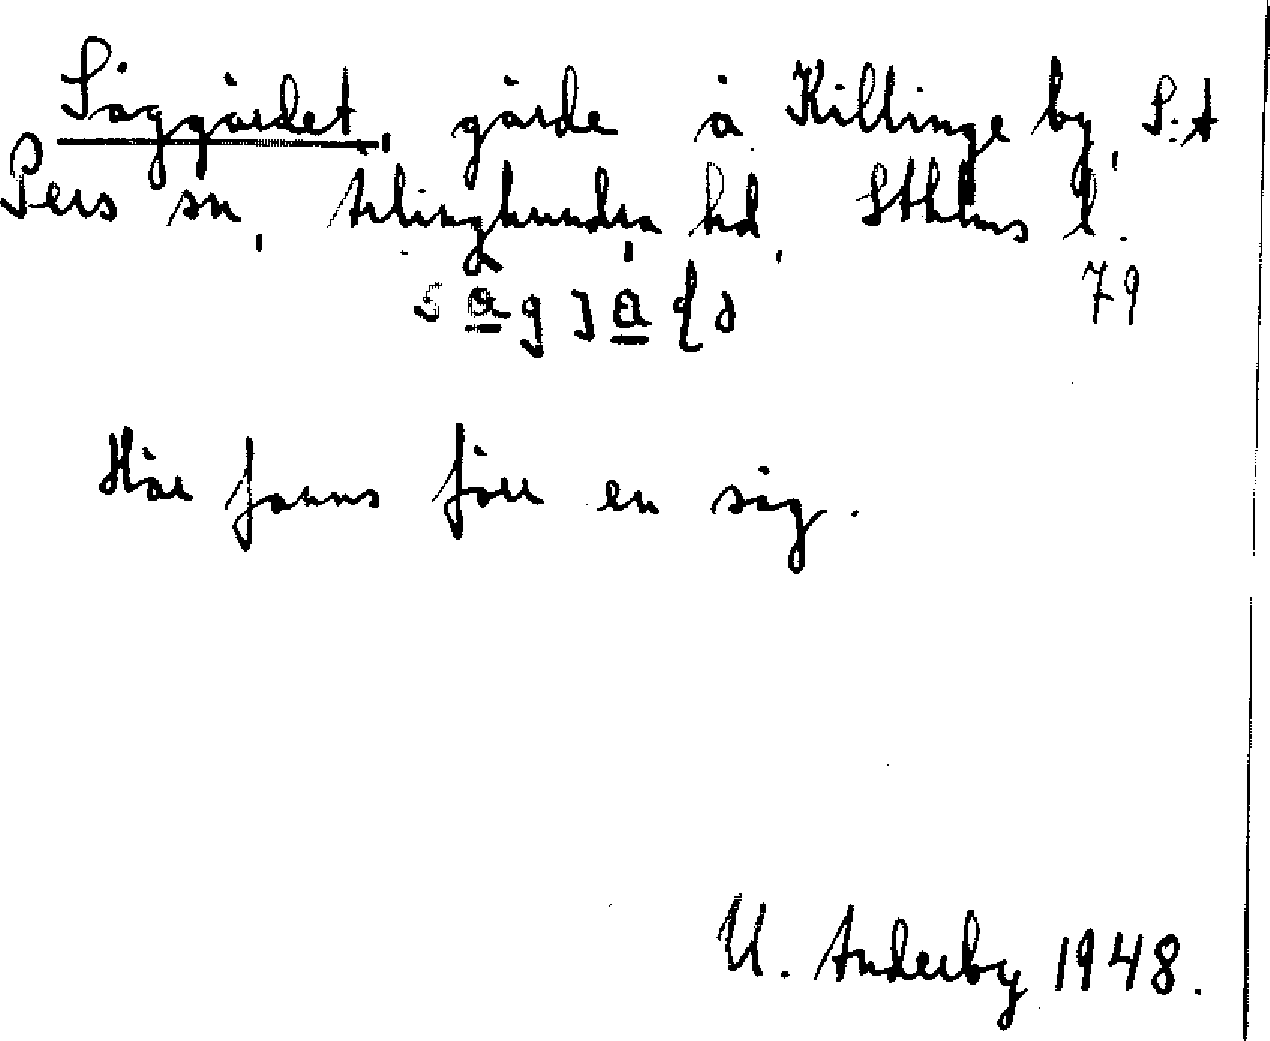 Såggärdet, gärde å Killinge by, S:t
Pers sn, Ärlinghundra hd, Sthlms l.
79
Här fanns förr en såg.
U. Anderby 1948.